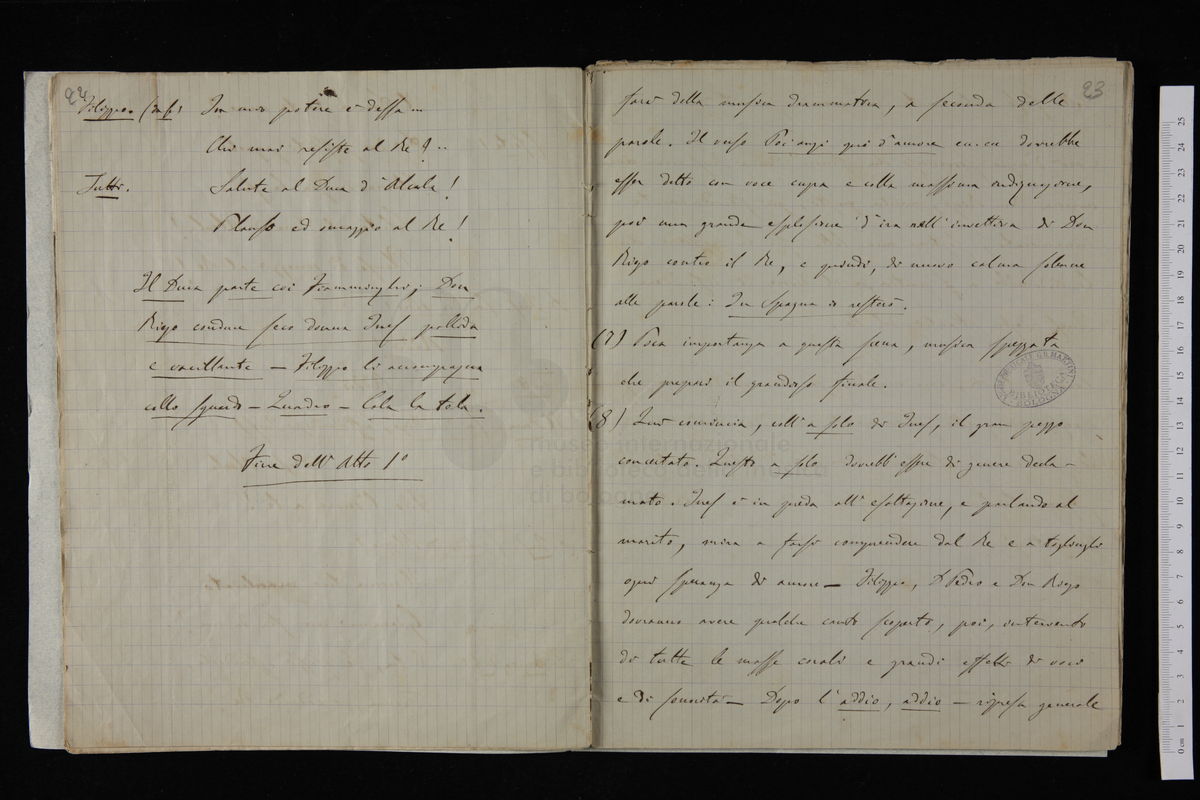 22
Filippo. (da sé) In mio potere è dessa...
Chi mai resiste al Re?..
Tutti. Salute al Duca d'Alcala!
Plauso ed omaggio al Re!
Il Duca parte coi Fiamminghi; Don
Rigo conduce seco donna Ines pallida
e vacillante — Filippo li accompagna
collo sguardo — Quadro — Cala la tela.
Fine dell'Atto 1º
23
farsi della musica drammatica, a seconda delle
parole. Il verso Poi anzi quì d'amore ecc. ecc. dovrebbe
esser detto con voce cupa e colla massima indignazione,
poi una grande esplosione d'ira nell'invettiva di Don
Rigo contro il Re, e quindi, di nuovo calma solenne
alle parole: In Spagna io resterò.
(7) Poca importanza a questa scena, musica spezzata
che prepari il grandioso finale.
(8) Quì comincia, coll'a solo di Ines, il gran pezzo
concertato. Questo a solo dovrebb'essere di genere decla-
mato. Ines è in preda all'esaltazione, e parlando al
marito, mira a farsi comprendere dal Re e a togliergli
ogni speranza di amore — Filippo, D Pedro e Don Rigo
dovranno avere qualche canto scoperto, poi, intervento
di tutte le masse corali e grandi effetti di voci
e di sonorità — Dopo l'addio, addio — ripresa generale
museo internazionale
BIBLIOTECA
BOLOGNA
0 cm 1 2 3 4 5 6 7 8 9 10 11 12 13 14 15 16 17 18 19 20 21 22 23 24 25